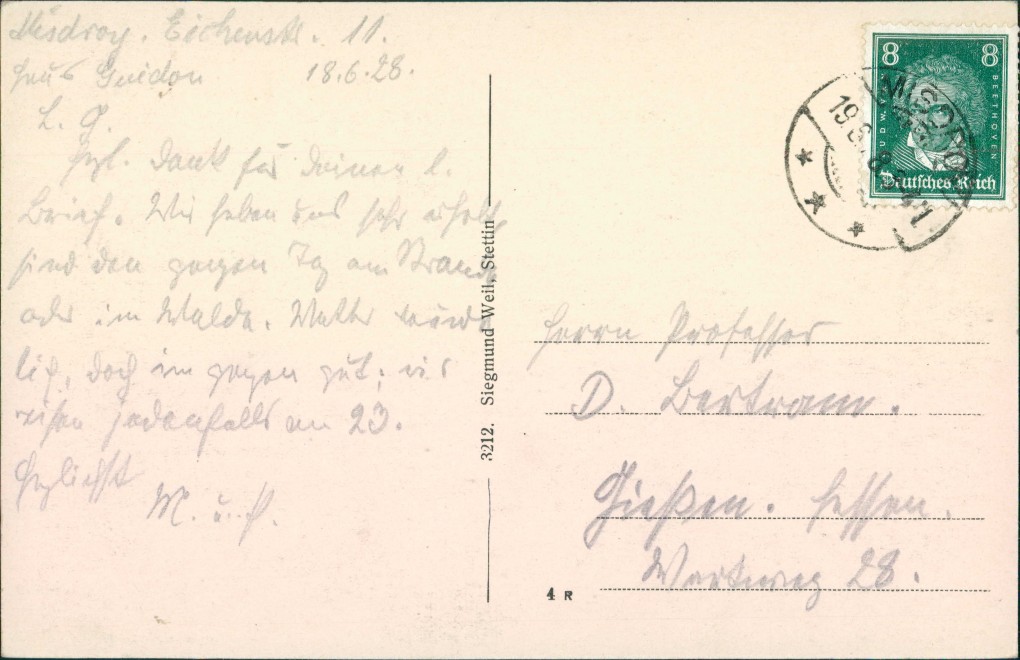 Misdroy. Eichenstr. 11.
Haus Guidon 18.6.28.
L. G.
Hzl. Dank für Deinen l.
Brief. Wir haben uns sehr erholt,
sind den ganzen Tag am Strande
oder im Walde. Wetter
lich, doch im ganzen gut; wir
reisen jedenfalls am 23.
Herzlichst
M. u. H.
3212. Siegmund Weil, Stettin
8 8
BEETHOVEN
Deutsches Reich
MISDROY
Herrn Professor
D. Bertram.
Gießen. Hessen.
Wartweg 28.
4 R